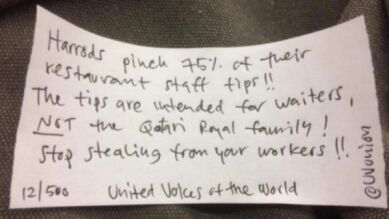 Harrods pinch 75% of their
restaurant staff tips!!
The tips are intended for waiters,
NOT the Qatari Royal family!
Stop stealing from your workers!!
12/500 United Voices of the World
@UVWunion